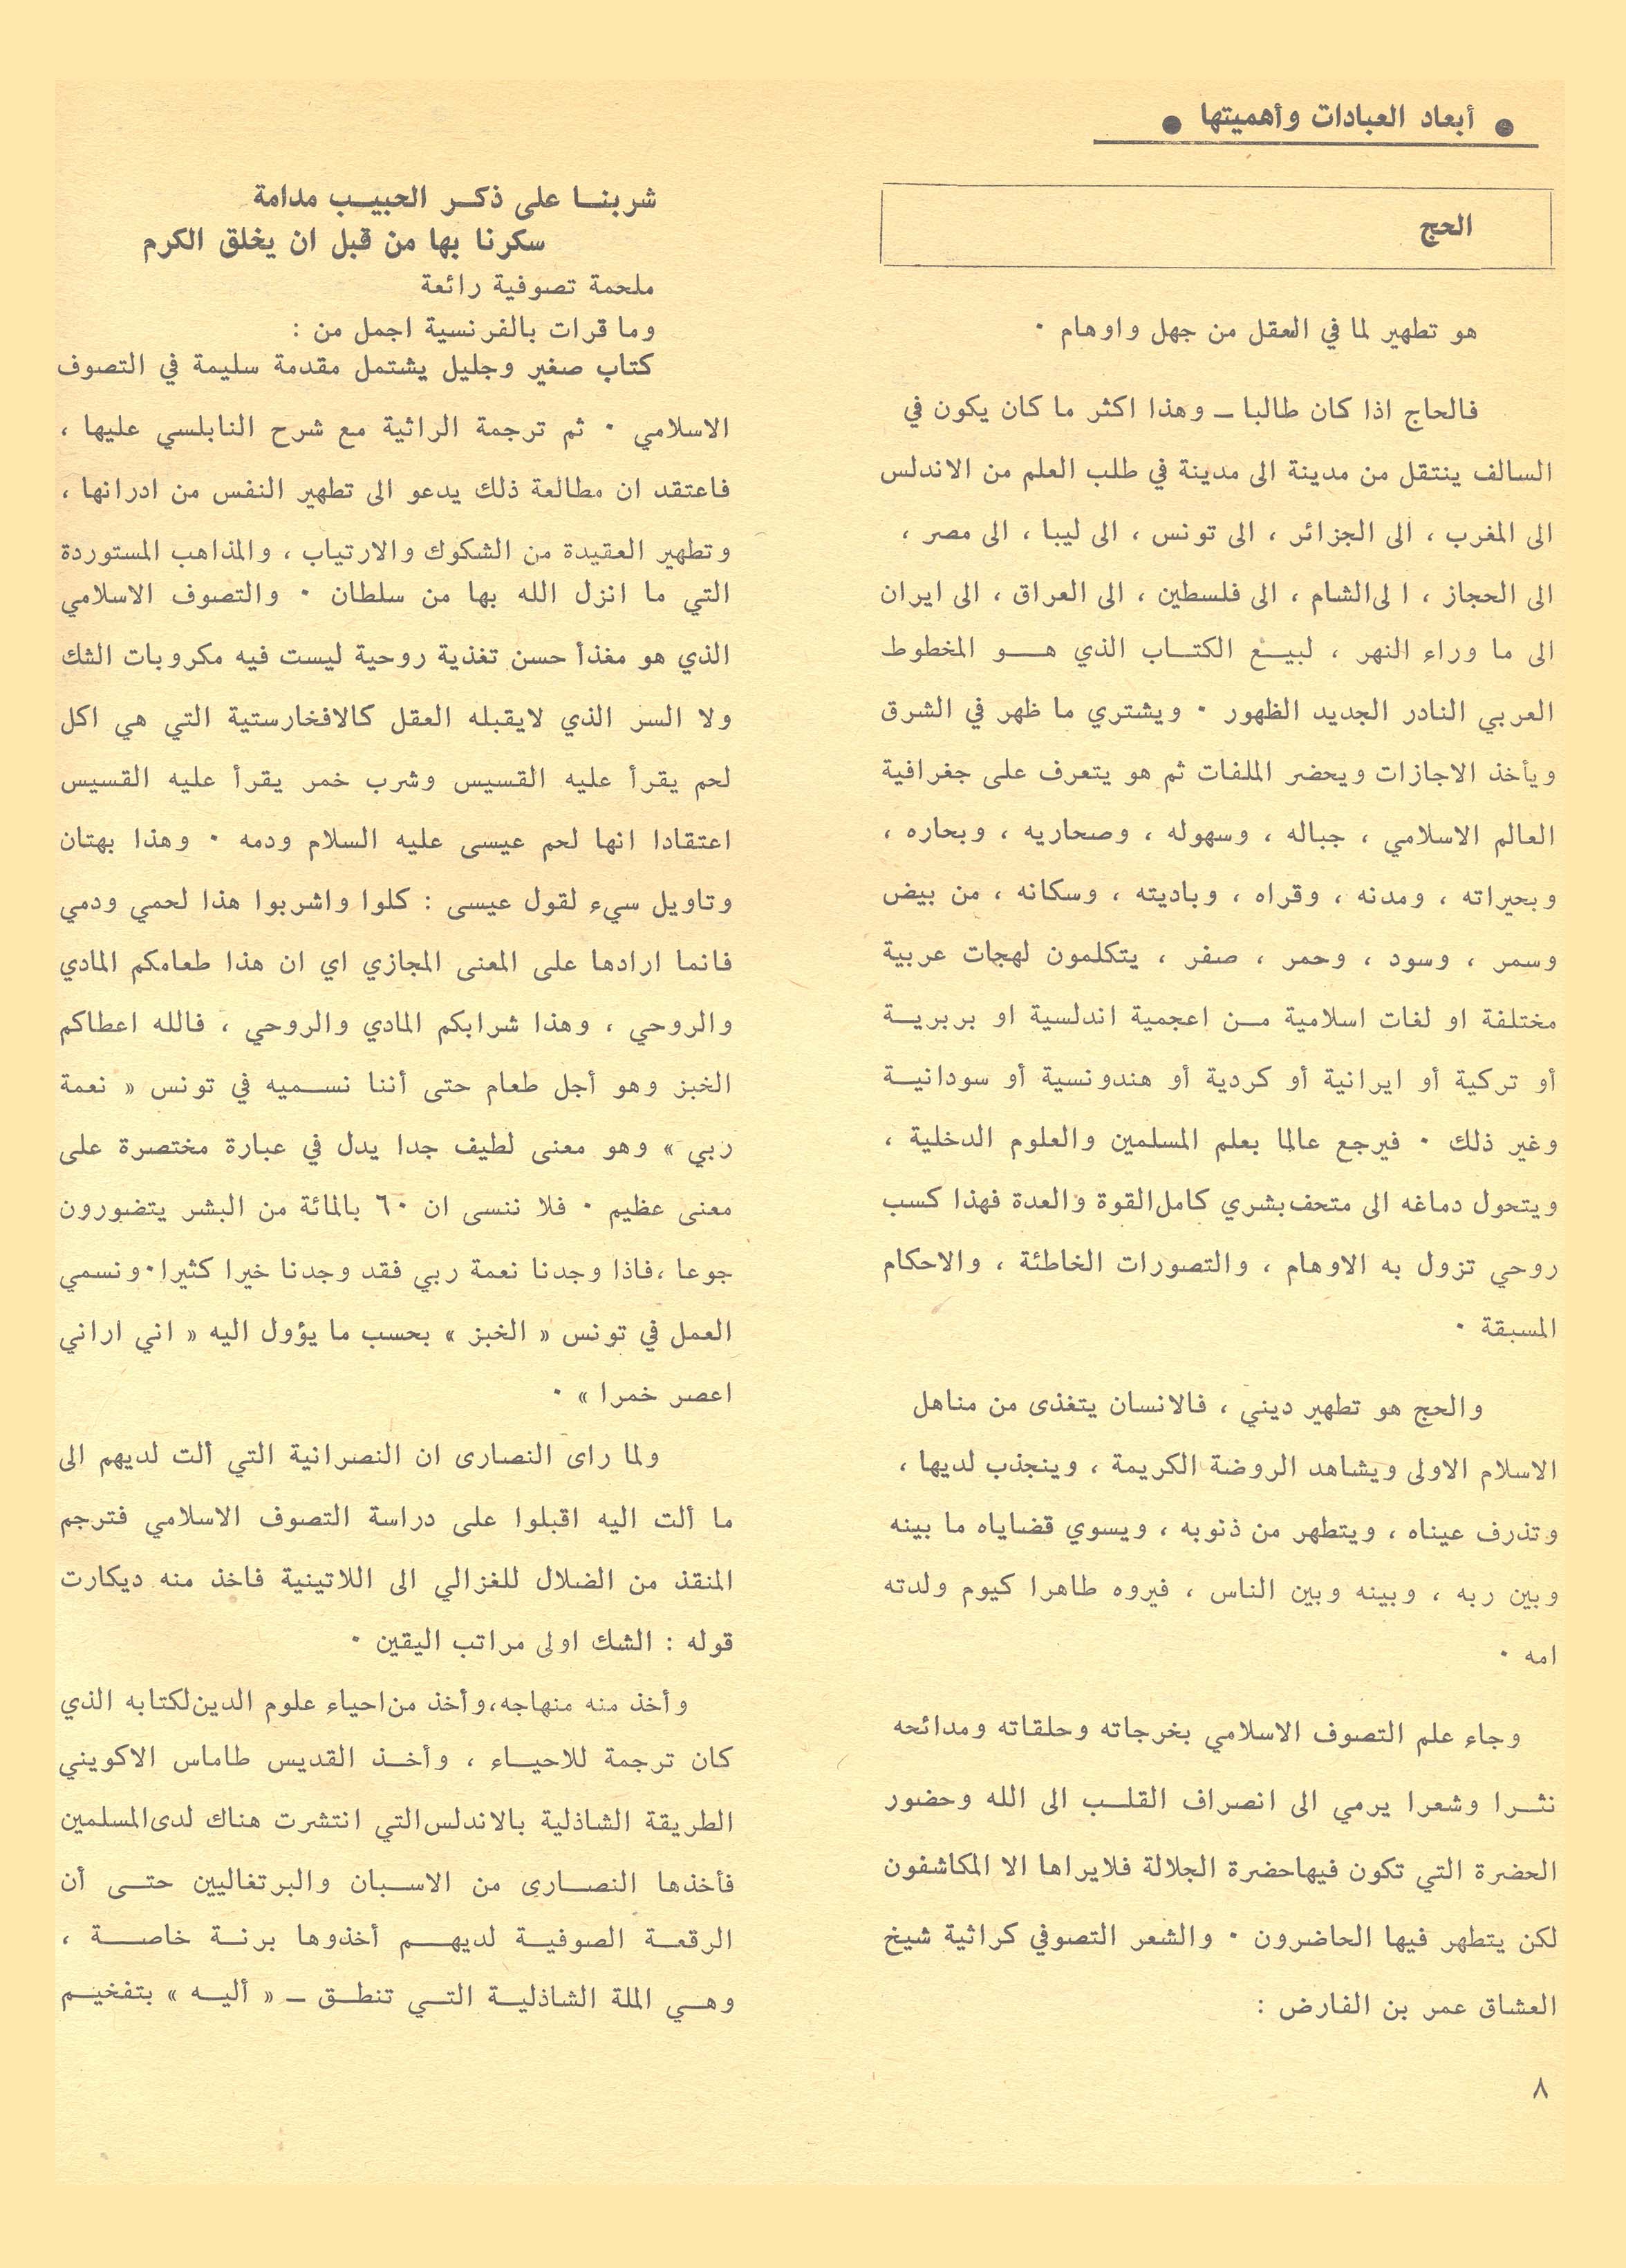 ● أبعاد العبادات وأهميتها ●
الحج
هو تطهير لما في العقل من جهل واوهام ٠
فالحاج اذا كان طالبا ــ وهذا اكثر ما كان يكون في
السالف ينتقل من مدينة الى مدينة في طلب العلم من الاندلس
الى المغرب ، الى الجزائر ، الى تونس ، الى ليبا ، الى مصر ،
الى الحجاز ، ا لى الشام ، الى فلسطين ، الى العراق ، الى ايران
الى ما وراء النهر ، لبيــع الكتــاب الذي هــو المخطوط
العربي النادر الجديد الظهور ٠ ويشتري ما ظهر في الشرق
ويأخذ الاجازات ويحضر الملفات ثم هو يتعرف على جغرافية
العالم الاسلامي ، جباله ، وسهوله ، وصحاريه ، وبحاره ،
وبحيراته ، ومدنه ، وقراه ، وباديته ، وسكانه ، من بيض
وسمر ، وسود ، وحمر ، صفر ، يتكلمون لهجات عربية
مختلفة او لغات اسلامية مــن اعجمية اندلسية او بربريــة
أو تركية أو ايرانية أو كردية أو هندونسية أو سودانيــة
وغير ذلك ٠ فيرجع عالما بعلم المسلمين والعلوم الدخلية ،
ويتحول دماغه الى متحف بشري كامل القوة والعدة فهذا كسب
روحي تزول به الاوهام ، والتصورات الخاطئة ، والاحكام
المسبقة ٠
والحج هو تطهير ديني ، فالانسان يتغذى من مناهل
الاسلام الاولى ويشاهد الروضة الكريمة ، وينجذب لديها ،
وتذرف عيناه ، ويتطهر من ذنوبه ، ويسوي قضاياه ما بينه
وبين ربه ، وبينه وبين الناس ، فيروه طاهرا كيوم ولدته
امه ٠
وجاء علم التصوف الاسلامي بخرجاته وحلقاته ومدائحه
نثــرا وشعرا يرمي الى انصراف القلــب الى الله وحضور
الحضرة التي تكون فيهاحضرة الجلالة فلايراها الا المكاشفون
لكن يتطهر فيها الحاضرون ٠ والشعر التصوفي كراثية شيخ
العشاق عمر بن الفارض :
شربنــا على ذكــر الحبيــب مدامة
سكرنا بها من قبل ان يخلق الكرم
ملحمة تصوفية رائعة
وما قرات بالفرنسية اجمل من :
كتاب صغير وجليل يشتمل مقدمة سليمة في التصوف
الاسلامي ٠ ثم ترجمة الراثية مع شرح النابلسي عليها ،
فاعتقد ان مطالعة ذلك يدعو الى تطهير النفس من ادرانها ،
وتطهير العقيدة من الشكوك والارتياب ، والمذاهب المستوردة
التي ما انزل الله بها من سلطان ٠ والتصوف الاسلامي
الذي هو مغذأ حسن تغذية روحية ليست فيه مكروبات الشك
ولا السر الذي لايقبله العقل كالافخارستية التي هي اكل
لحم يقرأ عليه القسيس وشرب خمر يقرأ عليه القسيس
اعتقادا انها لحم عيسى عليه السلام ودمه ٠ وهذا بهتان
وتاويل سيء لقول عيسى : كلوا واشربوا هذا لحمي ودمي
فانما ارادها على المعنى المجازي اي ان هذا طعامكم المادي
والروحي ، وهذا شرابكم المادي والروحي ، فالله اعطاكم
الخبز وهو أجل طعام حتى أننا نســميه في تونس « نعمة
ربي » وهو معنى لطيف جدا يدل في عبارة مختصرة على
معنى عظيم ٠ فلا ننسى ان ٦٠ بالمائة من البشر يتضورون
جوعا ،فاذا وجدنا نعمة ربي فقد وجدنا خيرا كثيرا٠ ونسمي
العمل في تونس « الخبز » بحسب ما يؤول اليه « اني اراني
اعصر خمرا » ٠
ولما راى النصارى ان النصرانية التي ألت لديهم الى
ما ألت اليه اقبلوا على دراسة التصوف الاسلامي فترجم
المنقذ من الضلال للغزالي الى اللاتينية فاخذ منه ديكارت
قوله : الشك اولى مراتب اليقين ٠
وأخذ منه منهاجه،وأخذ من احياء علوم الدين لكتابه الذي
كان ترجمة للاحيــاء ، وأخــذ القديس طاماس الاكويني
الطريقة الشاذلية بالاندلس التي انتشرت هناك لدى المسلمين
فأخذها النصــارى من الاســبان والبرتغاليين حتــى أن
الرقعــة الصوفيــة لديهــم أخذوها برنــة خاصــة ،
وهــي الملة الشاذليــة التــي تنطــق ــ « أليــه » بتفخيــم
٨